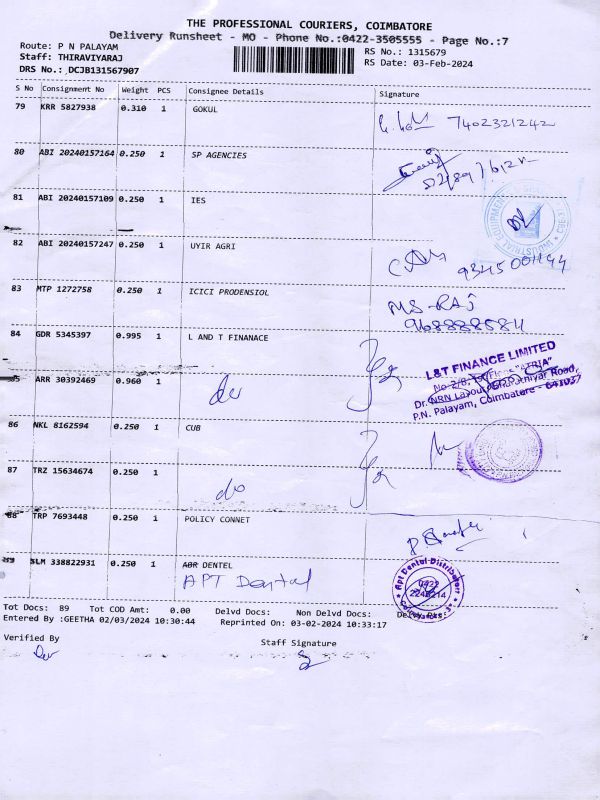 THE PROFESSIONAL COURIERS, COIMBATORE
Delivery Runsheet - MO - Phone No.:0422-3505555 - Page No.:7
Route: P N PALAYAM
RS No.: 1315679
Staff: THIRAVIYARAJ
RS Date: 03-Feb-2024
DRS No.: DCJB131567907
S No Consignment No Weight PCS Consignee Details Signature
79 KRR 5827938 0.310 1 GOKUL
7402321242
80 ABI 20240157164 0.250 1 SP AGENCIES
81 ABI 20240157109 0.250 1 IES
82 ABI 20240157247 0.250 1 UYIR AGRI
9345001144
83 MTP 1272758 0.250 1 ICICI PRODENSIOL
MS-RAJ
84 GDR 5345397 0.995 1 L AND T FINANACE
L&T FINANCE LIMITED
"ATRIA"
P.N. Palayam, Coimbatore - 641037
85 ARR 30392469 0.960 1 do
86 NKL 8162594 0.250 1 CUB
87 TRZ 15634674 0.250 1 do
88 TRP 7693448 0.250 1 POLICY CONNET
89 SLM 338822931 0.250 1 ABR DENTEL
APT Dental
Apt Dental Distributors
0422
Tot Docs: 89 Tot COD Amt: 0.00 Delvd Docs: Non Delvd Docs:
Entered By :GEETHA 02/03/2024 10:30:44 Reprinted On: 03-02-2024 10:33:17
Verified By
Staff Signature